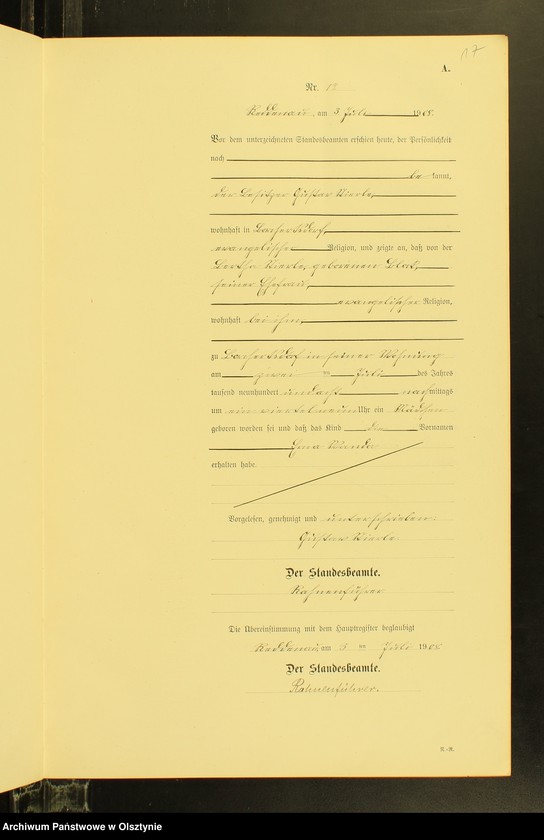 17
A.
Nr. 12
Reddenau, am 3 Juli 1908.
Vor dem unterzeichneten Standesbeamten erschien heute, der Persönlichkeit
nach
be kannt,
der Besitzer Gustav
wohnhaft in
evangelischer Religion, und zeigte an, daß von der
Bertha geborenen
seiner Ehefrau,
evangelischer Religion,
wohnhaft bei ihm,
zu in seiner Wohnung
am zwei ten Juli des Jahres
tausend neunhundert und acht nach mittags
um ein viertel neun Uhr ein Mädchen
geboren worden sei und daß das Kind die Vornamen
Wanda
erhalten habe.
Vorgelesen, genehmigt und unterschrieben.
Gustav
Der Standesbeamte.
Rahnenführer.
Die Übereinstimmung mit dem Hauptregister beglaubigt
Reddenau, am 3 ten Juli 1908
Der Standesbeamte.
Rahnenführer.
A.-R.
Archiwum Państwowe w Olsztynie